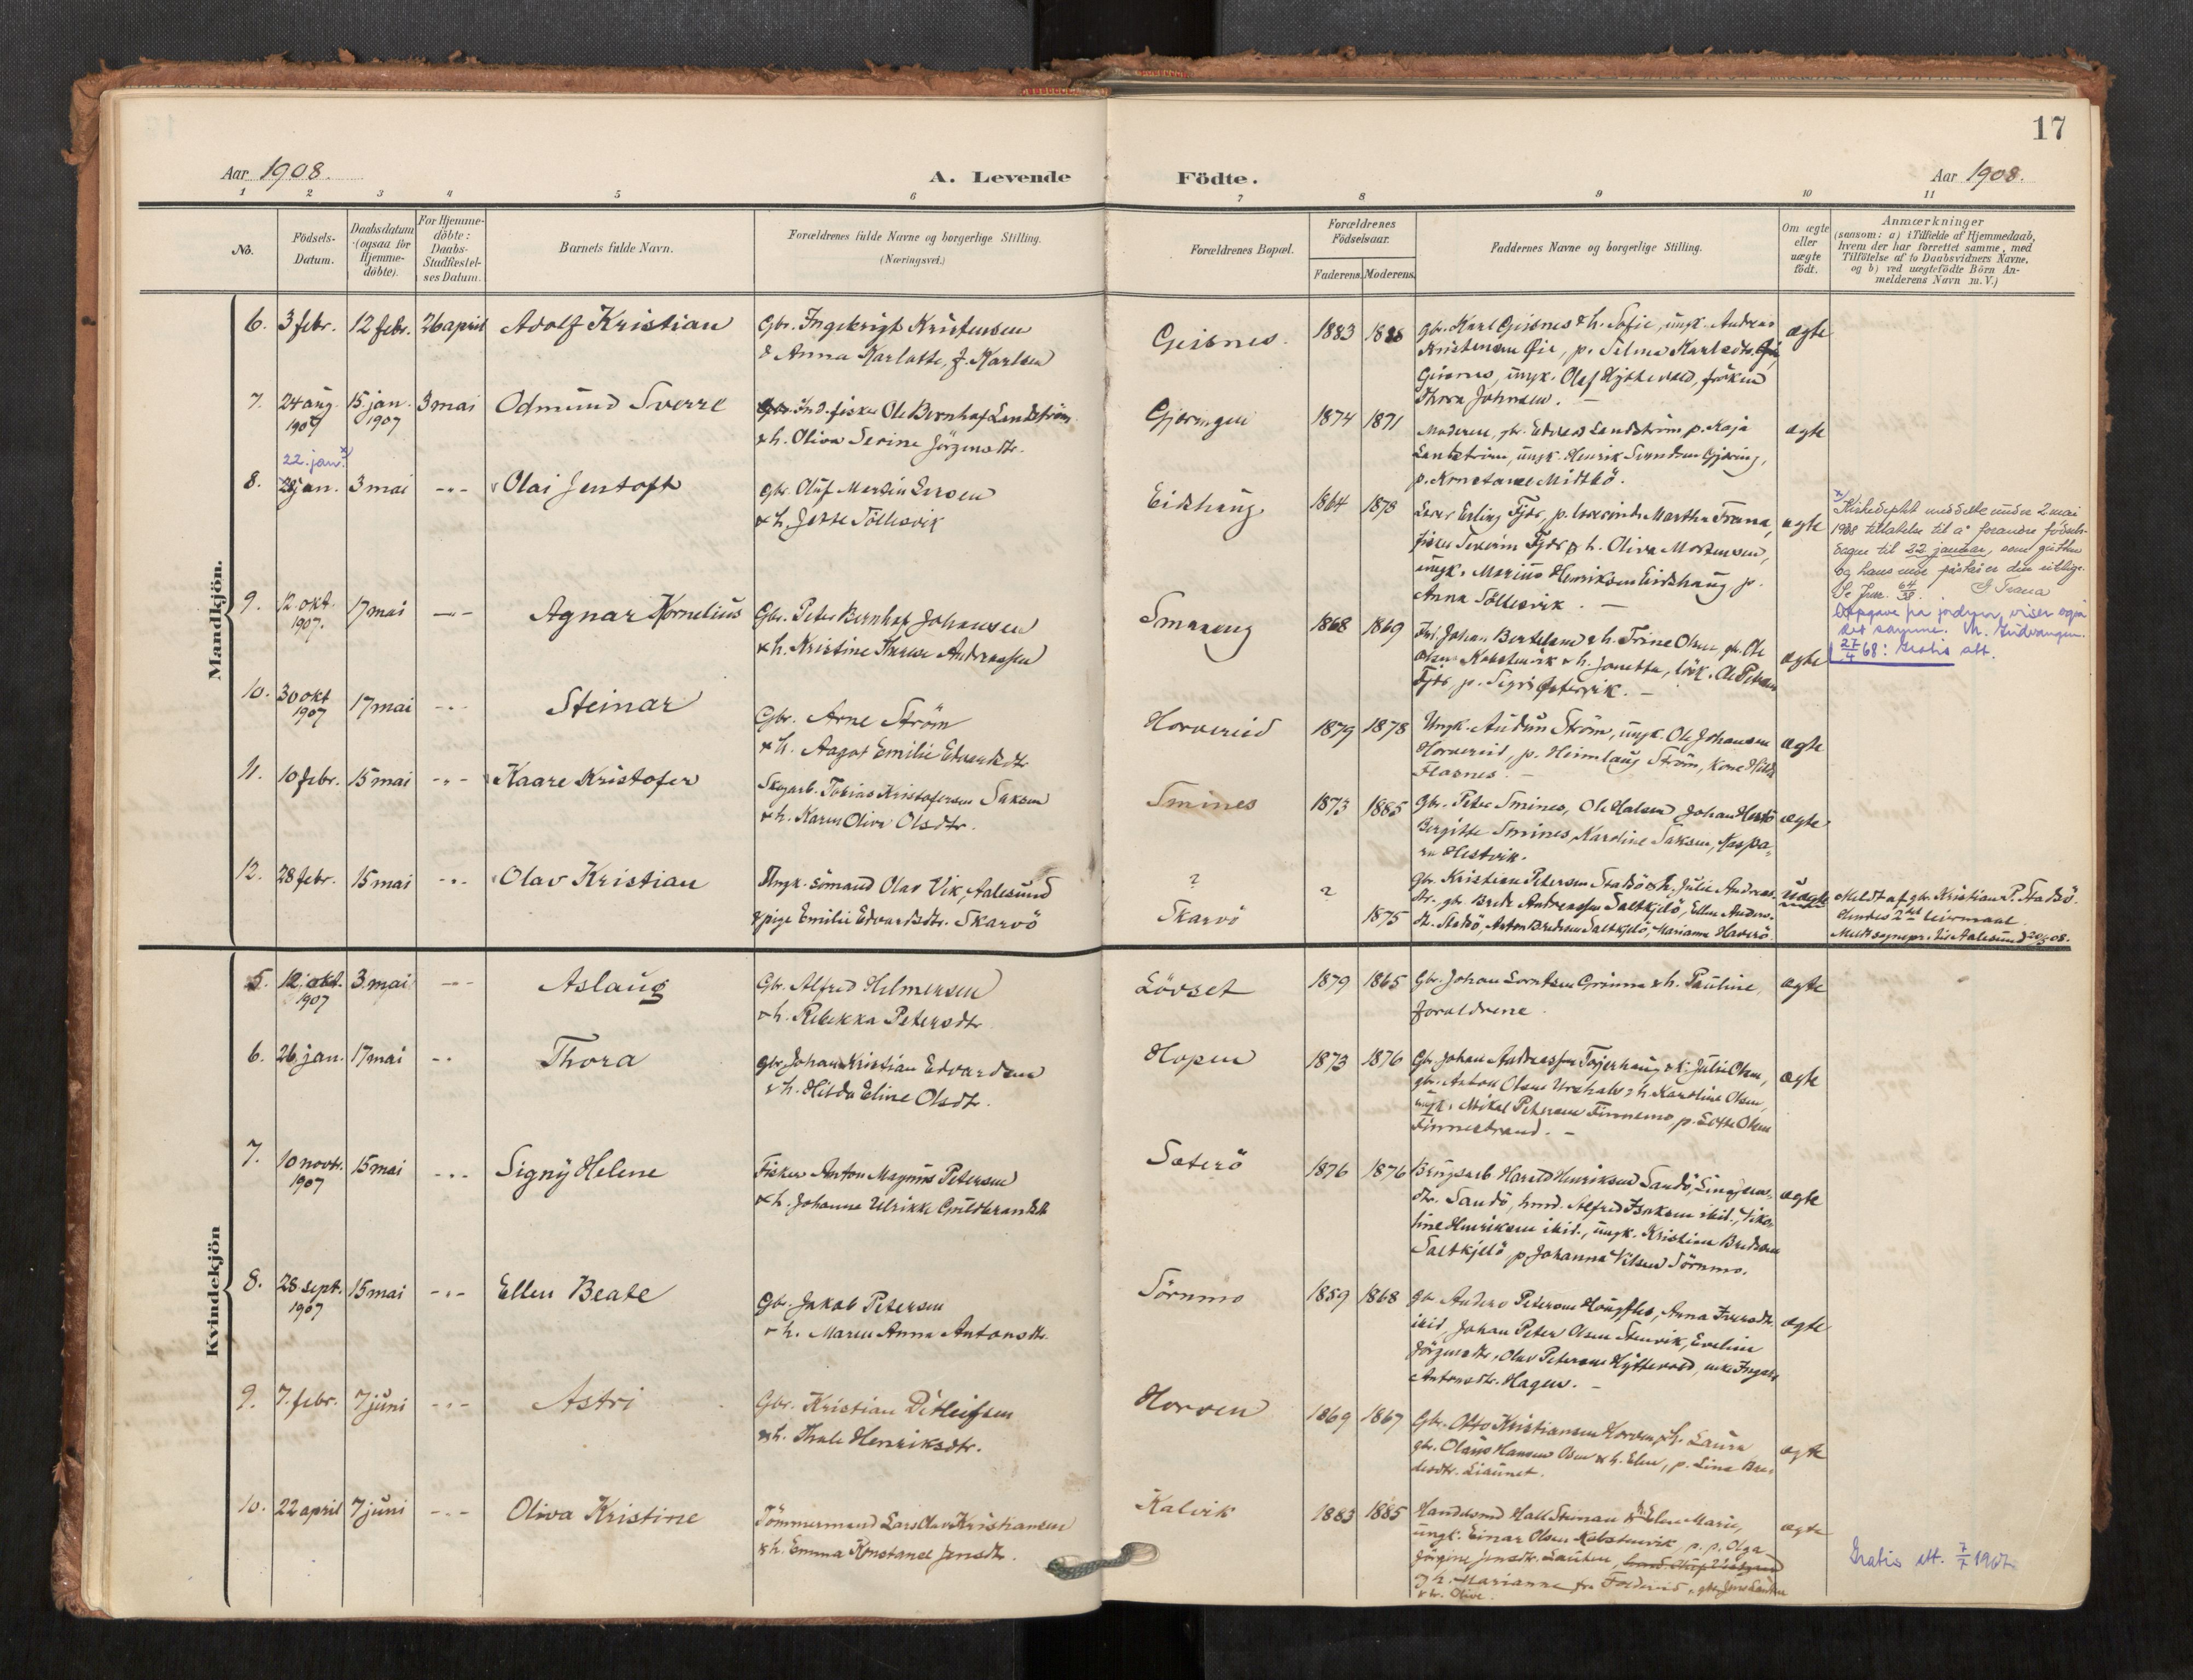 17
Aar 1908.
A. Levende Födte.
Aar 1908.
1 2 3 4 5 6 7 8 9 10 11
No.
Födsels-Datum.
Daabsdatum (ogsaa for Hjemme-döbte).
For Hjemme-döbte: Daabs-Stadfæstel-ses Datum.
Barnets fulde Navn.
Forældrenes fulde Navne og borgerlige Stilling.
(Næringsvei.)
Forældrenes Bopæl.
Forældrenes Födselsaar.
Faderens. Moderens.
Faddernes Navne og borgerlige Stilling.
Om ægte eller uægte födt.
Anmærkninger
(saasom: a) i Tilfælde af Hjemmedaab,
hvem der har forrettet samme, med
Tilföielse af to Daabsvidners Navne,
og b) ved uægtefödte Börn An-
melderens Navn m. V.)
Mandkjön.
6. 3 febr. 12 febr. 26 april Adolf Kristian
Gbr. Ingebrigt Kristensen
& Anna Karlotte, f. Karlsen
Geisnes. 1883 1888
gbr. Karl Geisnes & h. Sofie, ungk. Andreas
Kristensen Øie, p. Selma Karlsdtr.
Geisnes, ungk. Olaf Hyttevold, fröken
Thora Johnsen. —
ægte
7. 24 aug. 1907 15 jan. 1907 3 mai Odmund Sverre
Ind. fisker Ole Bernhof Lundström
& h. Oliva Serine Jörgensdtr.
Gjæringen 1874 1871
Moderen, gbr. Edvard Lundström p. Kaja
Lundström, ungk. Henrik Gjæring,
p. Konstanse Midtbö.
ægte
22. jan. x)
8. 28 jan. 3 mai -"- Olai Jentoft
gbr. Oluf Martin Larsen
& h. Jesse Töllesvik
Eidshaug 1864 1878
Lærer Erling Fjær, p. Martha Frana,
fisker Severin Fjær & h. Oliva Mortensen,
ungk. Marius Henriksen Eidshaug p.
Anna Töllesvik. —
ægte
x) Kirkedeptet meddelte under 2 mai
1938 tillatelse til å forandre födsels-
dagen til 22 januar, som
og hans mor påstår er den riktige.
Se Jur. 64/38.
Oppgave fra jordmor viser også
det samme.
27/4 68: Gratis att.
9. 12 okt. 1907. 17 mai -"- Agnar Kornelius
Gbr. Peter Bernhof Johansen
& h. Kristine Therese Andreassen
Smaaeng 1868 1869
Johan Bertelsen & h. Trine Olsen, gbr. Ole
Olsen Kobstenvik & h. Janetta, Ole Petersen
Fjær, p. Sigrid Østervik. —
ægte
10. 30 okt 1907 17 mai -"- Steinar
Gbr. Arne Ström
& h. Aagot Emilie Edvardsdtr
Horvereid 1879 1878
Ungk. Audun Ström, ungk. Ole Johansen
Horvereid, p. Heimlaug Ström, kone Hilda
Flasnes. —
ægte
11. 10 febr. 15 mai -"- Kaare Kristofer
Skogarb. Tobias Kristofersen Saksen
& h. Karen Oliva Olsdtr.
Smines 1873 1885
Gbr. Peter Smines, Ole Halsen Johan
Bergitte Smines, Karoline Saksen, Kaspa-
ra Hestvik.
ægte
12. 28 febr. 15 mai -"- Olav Kristian
Ungk. sömand Olav Vik, Aalesund
& pige Emilie Edvardsdtr. Skarvö
? ?
Skarvö 1875
Gbr. Kristian Petersen Stadsö & h. Julie Andreas-
dtr. gbr. Brede Andreassen Saltkjelö, Ellen Anders-
dtr. Stadsö, Anton Bredesen Saltkjelö, Marianne Haverö.
Uægte
Meldt af gbr. Kristian P. Stadsö.
Hendes 2det leiermaal.
Meldt sognepr. til Aalesund 20/5 08.
Kvindekjön
5. 12 okt. 1907 3. mai -"- Aslaug
Gbr. Alfred Hilmersen
& h. Rebekka Petersdtr
Lövset 1879 1865
Gbr. Johan Lorntsen Grinna & h. Pauline,
forældrene.
ægte
6. 26. jan. 17 mai -"- Thora
gbr. Johan Kristian Edvardsen
& h. Hilda Eline Olsdtr.
Hopen 1873 1876
Gbr. Johan Andreassen & h. Julie Olsen,
gbr. Anton Olsen & h. Karoline Olsen,
ungk. Mikal Petersen Finnemo, p. Lotte Olsen
Finnestrand. —
ægte
7. 10 novbr. 1907 15 mai -"- Signy Helene
Fisker Anton Magnus Petersen
& h. Johanna Ulrikke Guldbrandsdtr
Sæterö 1876 1876
Brugsarb. Harald Henriksen Sandö, Lina
dtr. Sandö, Alfred Isaksen ibid., Niko-
line Henriksen ibid., ungk. Kristian Bredesen
Saltkjelö p. Johanna Nilsen Sörnmo.
ægte
8. 28 sept. 1907 15 mai -"- Ellen Beate
Gbr. Jakob Petersen
& h. Maren Anna Antonsdtr.
Sörnmo 1859 1868
Gbr. Anders Petersen Haugfles, Anna Iversdtr.
ibid, Johan Peter Olsen Stenvik, Eveline
Jörgensdtr, Olav Petersen Hyttevold,
Antonsdtr. Hagen. —
ægte
9. 7. febr. 7 juni -"- Astri
Gbr. Kristian Ditlefsen
& h. Thale Henriksdtr.
Horven 1869 1867
Gbr. Otto Kristiansen Horven, & h. Laura,
gbr. Olaus Hansen Osen & h. Elen, p. Lina Bre-
desdtr. Liaunet.
ægte
10. 22 april 7 juni -"- Oliva Kristine
Tömmermand Lars Olav Kristiansen
& h. Emma Konstanse Jensdtr.
Kalvik 1883 1885
Handelsmd Hall Steinan & h. Elen Marie,
ungk. Einar Olsen Kobstenvik, p. p. Olga
Jörgine Jensdtr.
& h. Marianne fra Foldereid, gbr. Jens
& h. Olive.
ægte
Gratis att. 7/7 1967